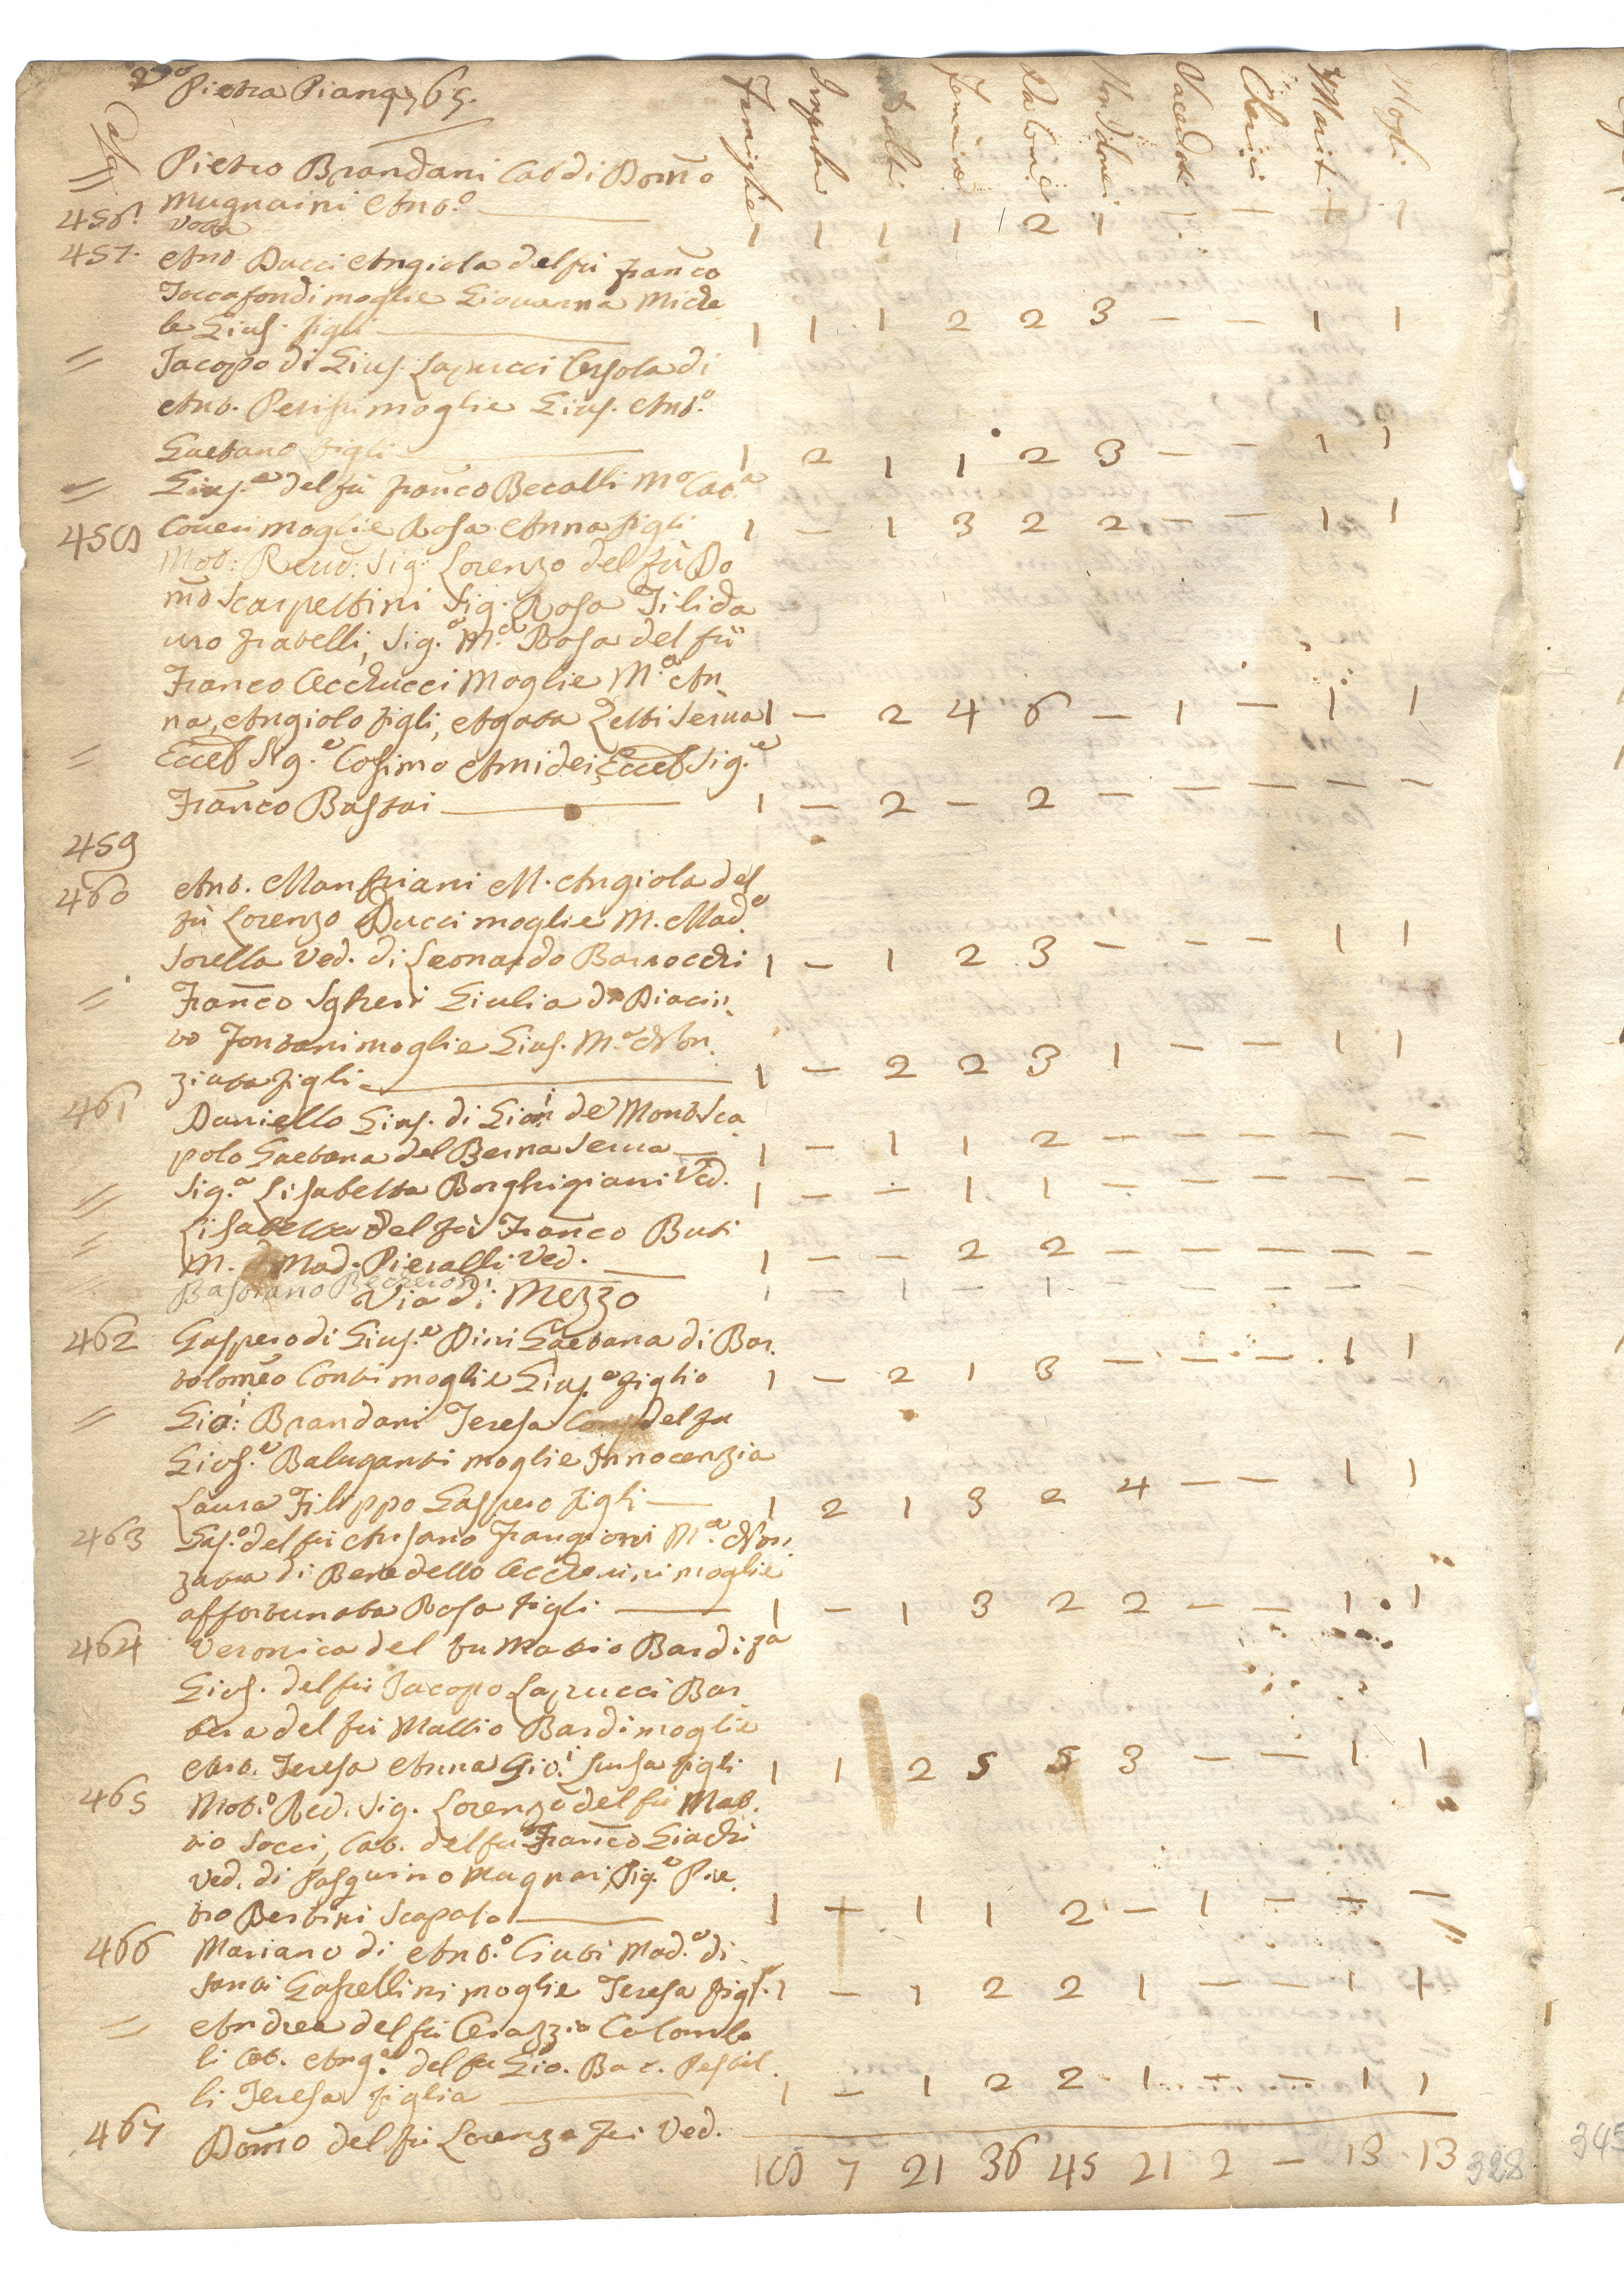 Pietra Piana 765.
Case Famiglie Impuberi Adulti Femmine Da Com.e Non da Com.e Sacerdoti Cherici Mariti Mogli
= Pietro Brandani Cat. di Dom̃o
456. Mugnaini Ant.o — 1 1 1 1 2 1 — — 1 1
Vota
457. Ant. Ducci Angiola del fù Franc̃o
Toccafondi moglie Giovanna Miche
le Gius. figli — 1 1 1 2 2 3 — — 1 1
= Jacopo di Gius. Lapucci Orsola di
Ant. Perissi moglie Gius. Ant.o
Gaetano figli — 1 2 1 1 2 3 — — 1 1
= Gius.e del fù Franc̃o Becalli M.o Cat.a
458 Coveri moglie Rosa Anna figli 1 — 1 3 2 2 — — 1 1
Molt: Revd: Sig: Lorenzo del fù Do
m̃o Scarpettini Sig. Rosa Filida
uro fratelli, Sig.a M.a Rosa del fù
Franco Cecchucci Moglie M.a An
na, Angiolo figli, Agata Zetti serva 1 — 2 4 6 — 1 — 1 1
= Eccel Sig.e Cosimo Amidei, Eccel Sig.e
Franc̃o Bassai — 1 — 2 — 2 — — — — —
459
460 Ant. Manfriani M. Angiola del
fù Lorenzo Ducci moglie M. Mad.a
sorella Ved. di Leonardo Barrocchi 1 — 1 2 3 — — — 1 1
= Franc̃o Sgheri Giulia di Diacin
to Fontani moglie Gius. M.a Nun
ziata figli — 1 — 2 2 3 1 — — 1 1
461 Daniello Gius. di Gioi: de' Mont. Sca
polo Gaetana del Berna serva — 1 — 1 1 2 — — — — —
= Sig.a Lisabetta Borghigiani Ved. 1 — — 1 1 — — — — —
= Lisabetta del fù Franc̃o Buti
M. Mad. Pieralli Ved. — 1 — — 2 2 — — — — —
= Bastiano Becheroni 1 — 1 — 1 — — — — —
Via di Mezzo
462 Gaspero di Gius.e Dini Gaetana di Bar
tolom̃eo Conti moglie Gius.e figlio 1 — 2 1 3 — — — 1 1
= Gioi: Brandani Teresa del fu
Gius.e Baluganti moglie Innocenzia
Laura Filippo Gaspero figli — 1 2 1 3 2 4 — — 1 1
463 Gas.o del fù Ansano Frangioni M.a Nun
ziata di Benedetto Ceccherini moglie
Affortunata Rosa figli — 1 — 1 3 2 2 — — 1 1
464 Veronica del fu Mattio Bardi za
Gius. del fù Jacopo Lapucci Bar
bera del fù Mattio Bardi moglie
Ant. Teresa Anna Gioi: Luisa figli 1 1 2 5 5 3 — — 1 1
465 Molt.o Red. Sig. Lorenzo del fù Mat
tio Socci, Cat. del fu Franc̃o Giachi
Ved. di Pasquino Mugnai, Sig.e Pie
tro Bertini Scapolo — 1 — 1 1 2 — 1 — — —
466 Mariano di Ant.o Ciuti Mad.a di
Santi Gastellini moglie Teresa figl.a 1 — 1 2 2 1 — — 1 1
= Andrea del fù Orazzio Colombo
li Cat. Ang.a del fu Gio. Bat. Pestel
li Teresa figlia — 1 — 1 2 2 1 — — 1 1
467 Dom̃o del fù Lorenzo Fei Ved.
18 7 21 36 45 21 2 — 13 13 328
345